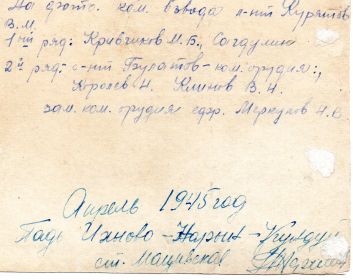 На фото: ком. взвода л-нт Куряшов
В.М.
1-ый ряд: Кривчиков М.В., Сагдулин
2-й ряд: с-нт Булатов - ком. орудия:,
Королев Н. Климов В. Н.
зам. ком. орудия ефр. Меркулов Н.В.
Апрель 1945 год
Падь - Нарын -
ст. Мациевская